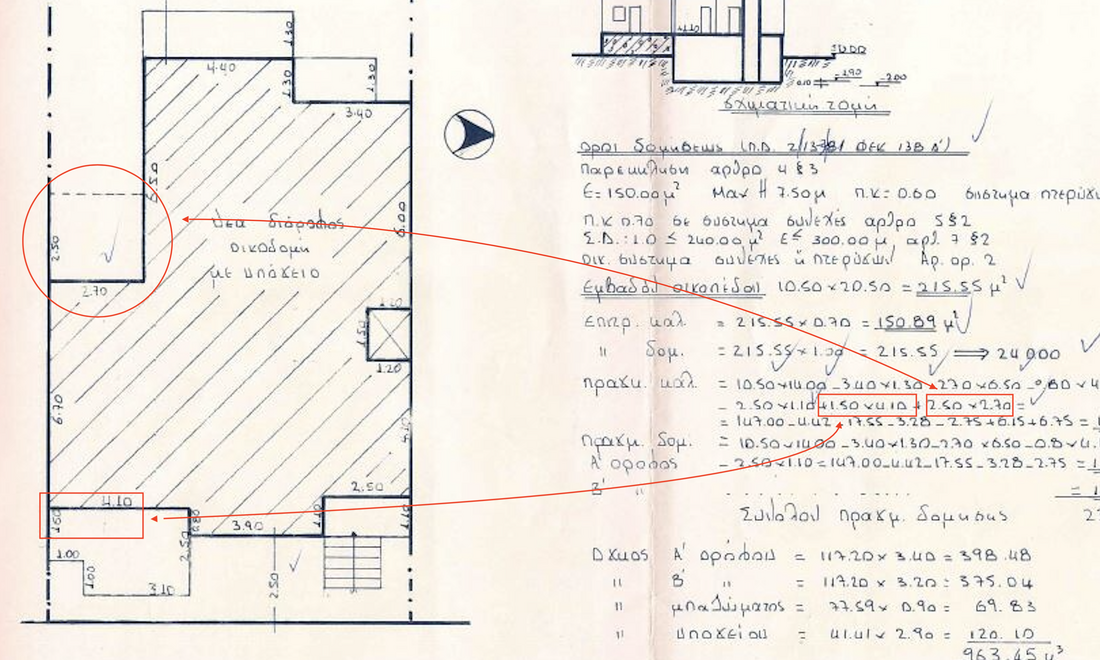 1.30
4.40
1.30
1.30
3.40
6.50
6.00
Νέα διόροφος
οικοδομή
με υπόγειο
2.50
2.70
1.20
1.50
1.20
6.70
4.10
1.50
0.80
3.90
2.50
1.10
2.50
1.00
1.00
3.10
2.50
4.10
±0.00
-1.90
-2.00
σχηματική τομή
Όροι δομήσεως (Π.Δ. 2/13781 ΦΕΚ 138 Δ')
Παρέκκλιση άρθρο 4 §3
Ε=150.00μ² Max H 7.50μ Π.Κ=0.60 σύστημα πτερύγων
Π.Κ 0.70 σε σύστημα συνεχές άρθρο 5§2
Σ.Δ.: 1.0 ≤ 240.00 μ² Ε≤ 300.00 μ, αρθ. 7 §2
Οικ. σύστημα συνεχές ή πτερύγων Αρ. ορ. 2
Εμβαδόν οικοπέδου 10.50 × 20.50 = 215.55 μ²
Επιτρ. καλ = 215.55 × 0.70 = 150.89 μ²
" δομ. = 215.55 × 1.00 = 215.55 ⟹ 240.00
Πραγμ. καλ = 10.50×14.00 -3.40×1.30 -2.70×6.50 -0.80×4
- 2.50×1.10 +1.50×4.10 + 2.50×2.70 =
= 147.00 -4.42 -17.55 -3.28 -2.75 +6.15 +6.75 =
Πραγμ. δομ. = 10.50×14.00 -3.40×1.30 -2.70 ×6.50 -0.8×4.
Α' όροφος - 2.50×1.10 = 147.00 -4.42 -17.55 -3.28 -2.75 =
Β' "
Σύνολον πραγμ. δόμησης
Όγκος Α' ορόφου = 117.20 × 3.40 = 398.48
" Β' " = 117.20 × 3.20 = 375.04
" μπαζώματος = 77.59 × 0.90 = 69.83
" υπογείου = 41.41 × 2.90 = 120.10
963.45 μ³